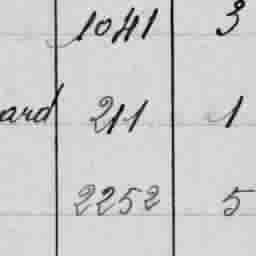 1041 3
ard 211 1
2252 5